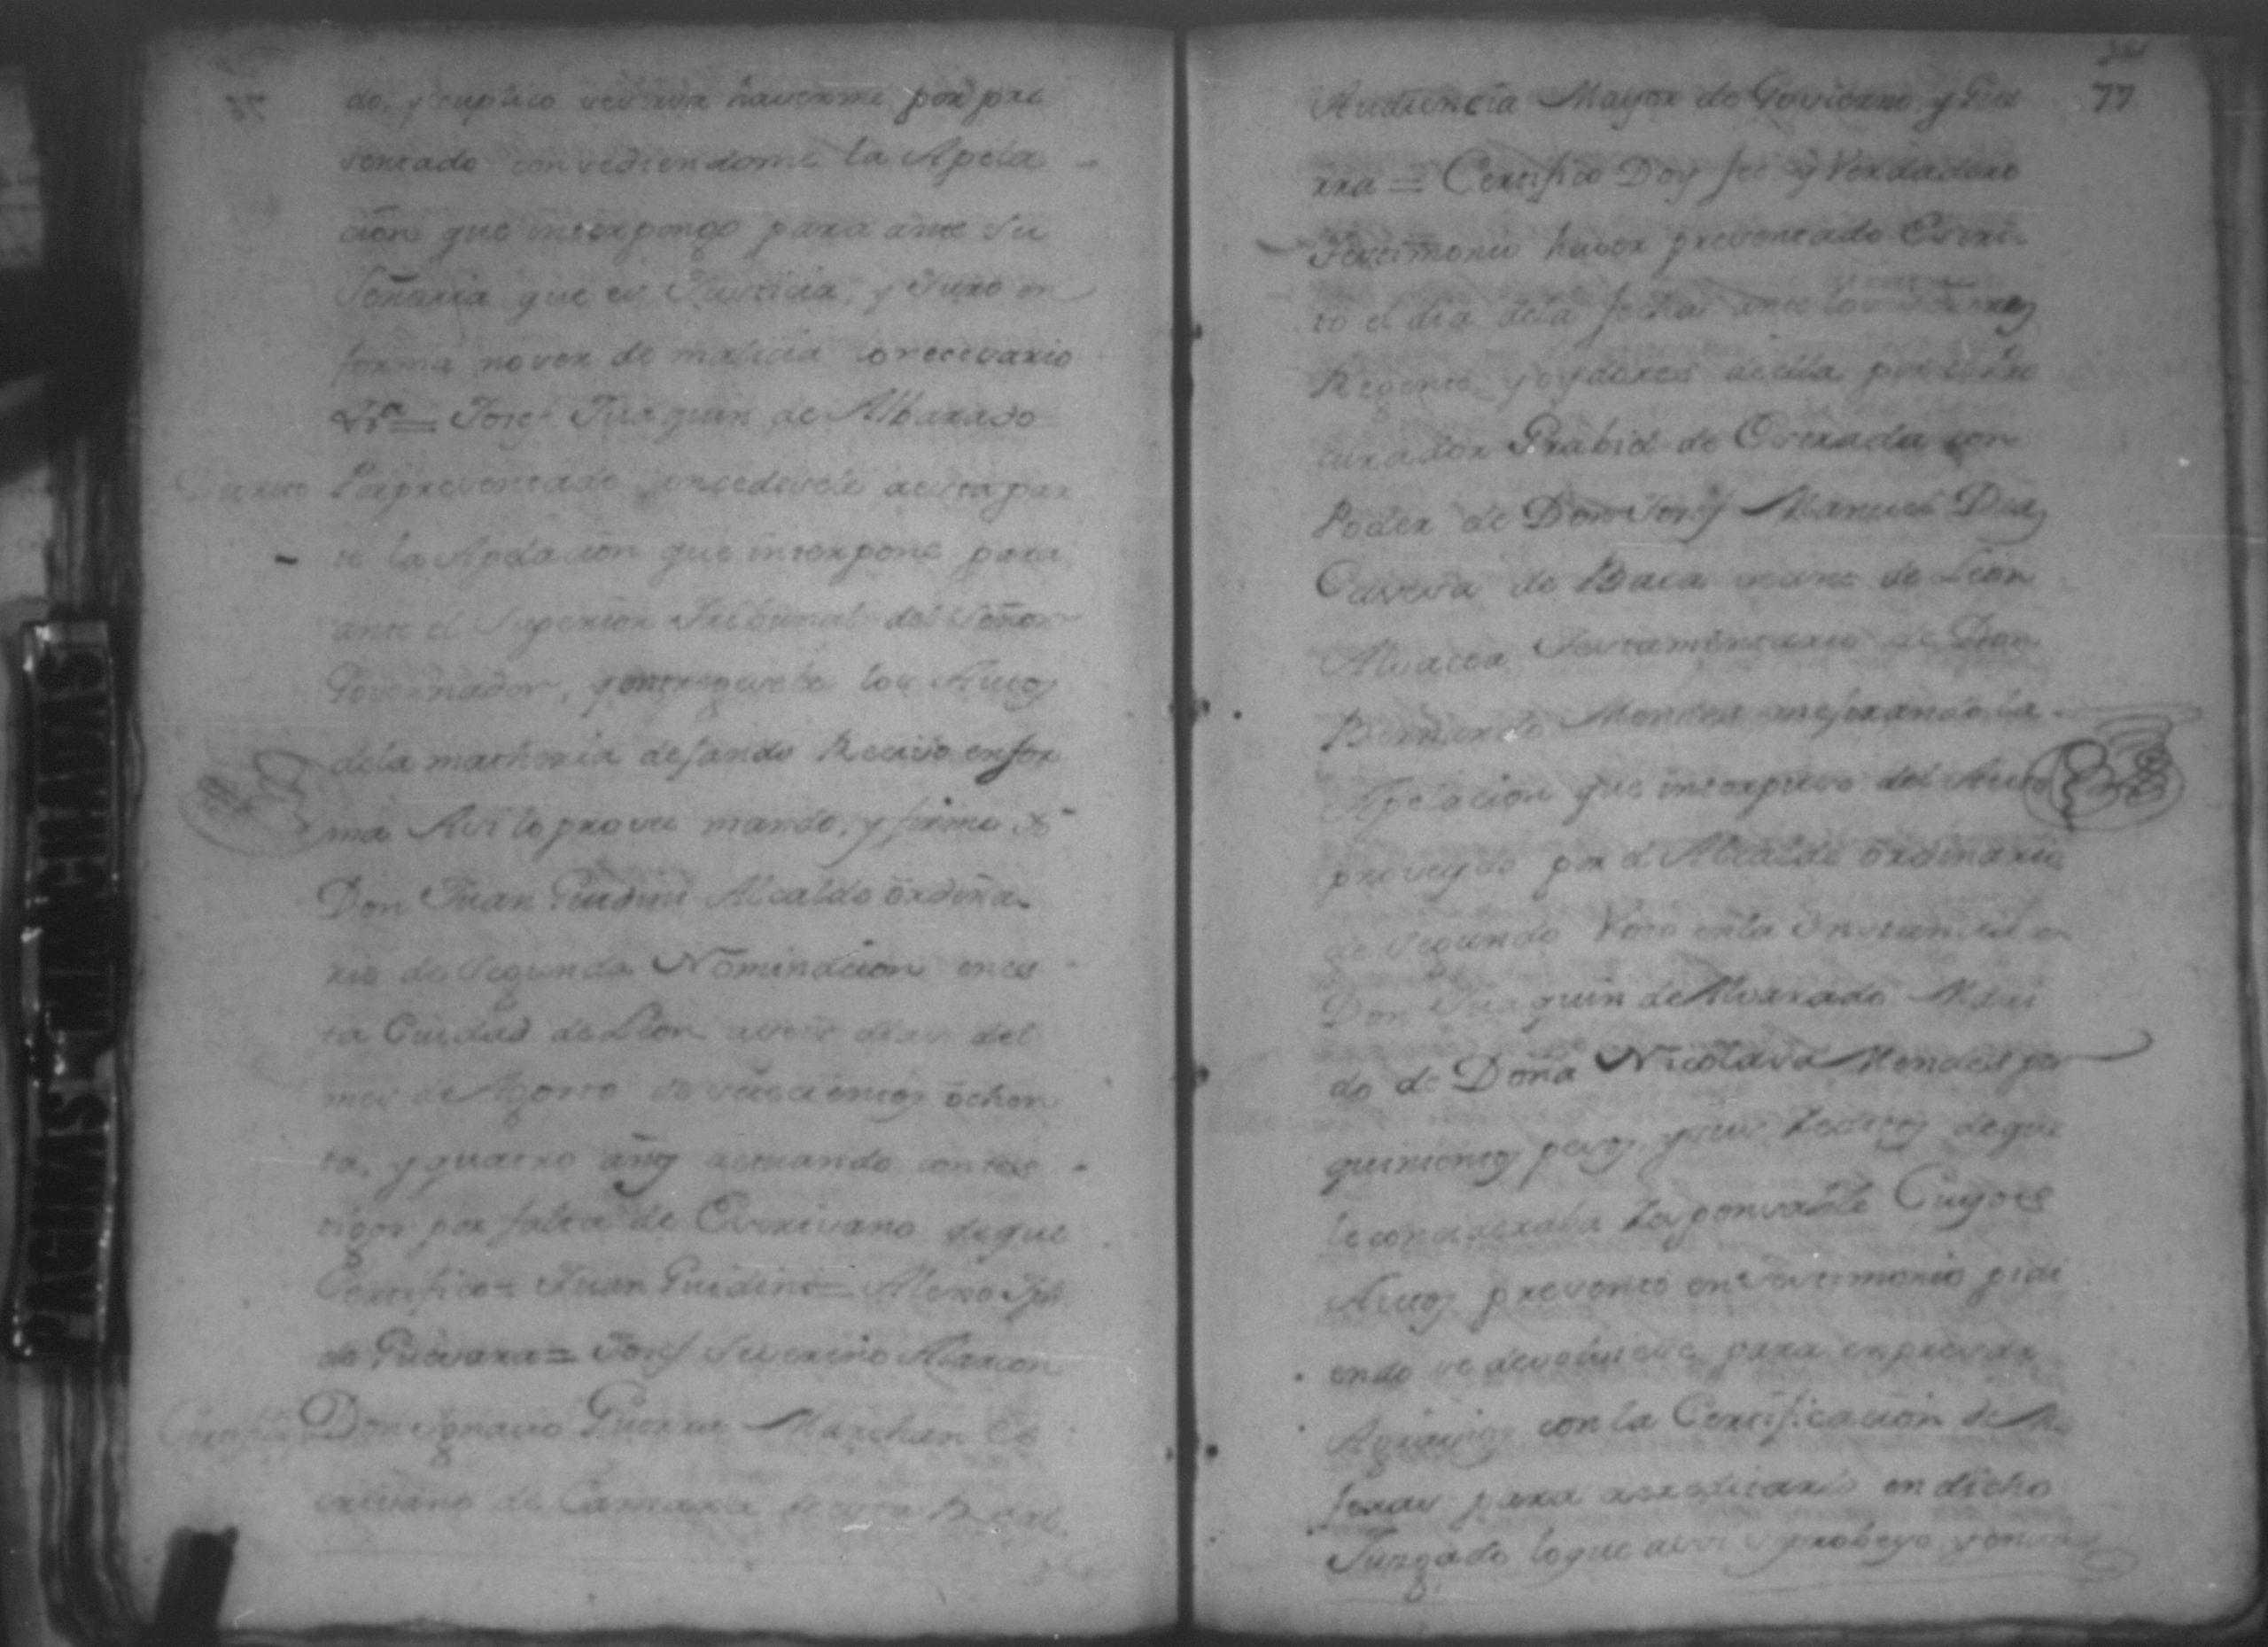 do, y suplico se sirva haverme por pre
sentado consediendome la Apela
cion que interpongo para ante Su
Señoria que es Justicia, y Juro en
forma no ser de malicia lo necesario
&ra = Josef Juaquin de Albarado
Por presentado consedesele a esta par
te la Apelacion que interpone para
ante el Superior Tribunal del Señor
Governador, y entreguesele los Autos
dela matheria dejando Recivo en for
ma Asi lo provei mando, y firmo Yo
Don Juan Gurdine Alcalde ordina
rio de Segunda Nominacion en es
ta Ciudad de Leon a dias del
mes de Agosto de setecientos ochen
ta, y quatro años actuando con tes
tigos por falta de Escrivano de que
Certifico = Juan Gurdine = Jph
de Guevara = Josef Severino Alarcon
Don Ignacio Guerra Marchan Es
crivano de Camara de esta Real
77
Audiencia Mayor de Govierno y Gue
rra = Certifico Doy fee y Verdadero
Testimonio haver presentado Escri
to el dia dela fecha ante los Señores
Regente, y oydores de ella por el Pro
curador Grabiel de Estrada con
Poder de Don Josef Manuel Dias
Cavesa de Baca vecino de Leon
Alvacea Testamentario de Don
Bernardo Mendes mejorando la
Apelacion que interpuso del Auto
proveydo por el Alcalde ordinario
de Segundo Voto en la Instancia
Don Juaquin de Alvarado Mari
do de Doña Nicolasa Mendes por
quinientos pesos y sus Reditos de que
le consideraba Responsable Cuyos
Autos presento en testimonio pidi
endo se devolviese para expresar
Agravios con la Certificacion de Me
joras para acreditarlo en dicho
Jusgado lo que asi se probeyo